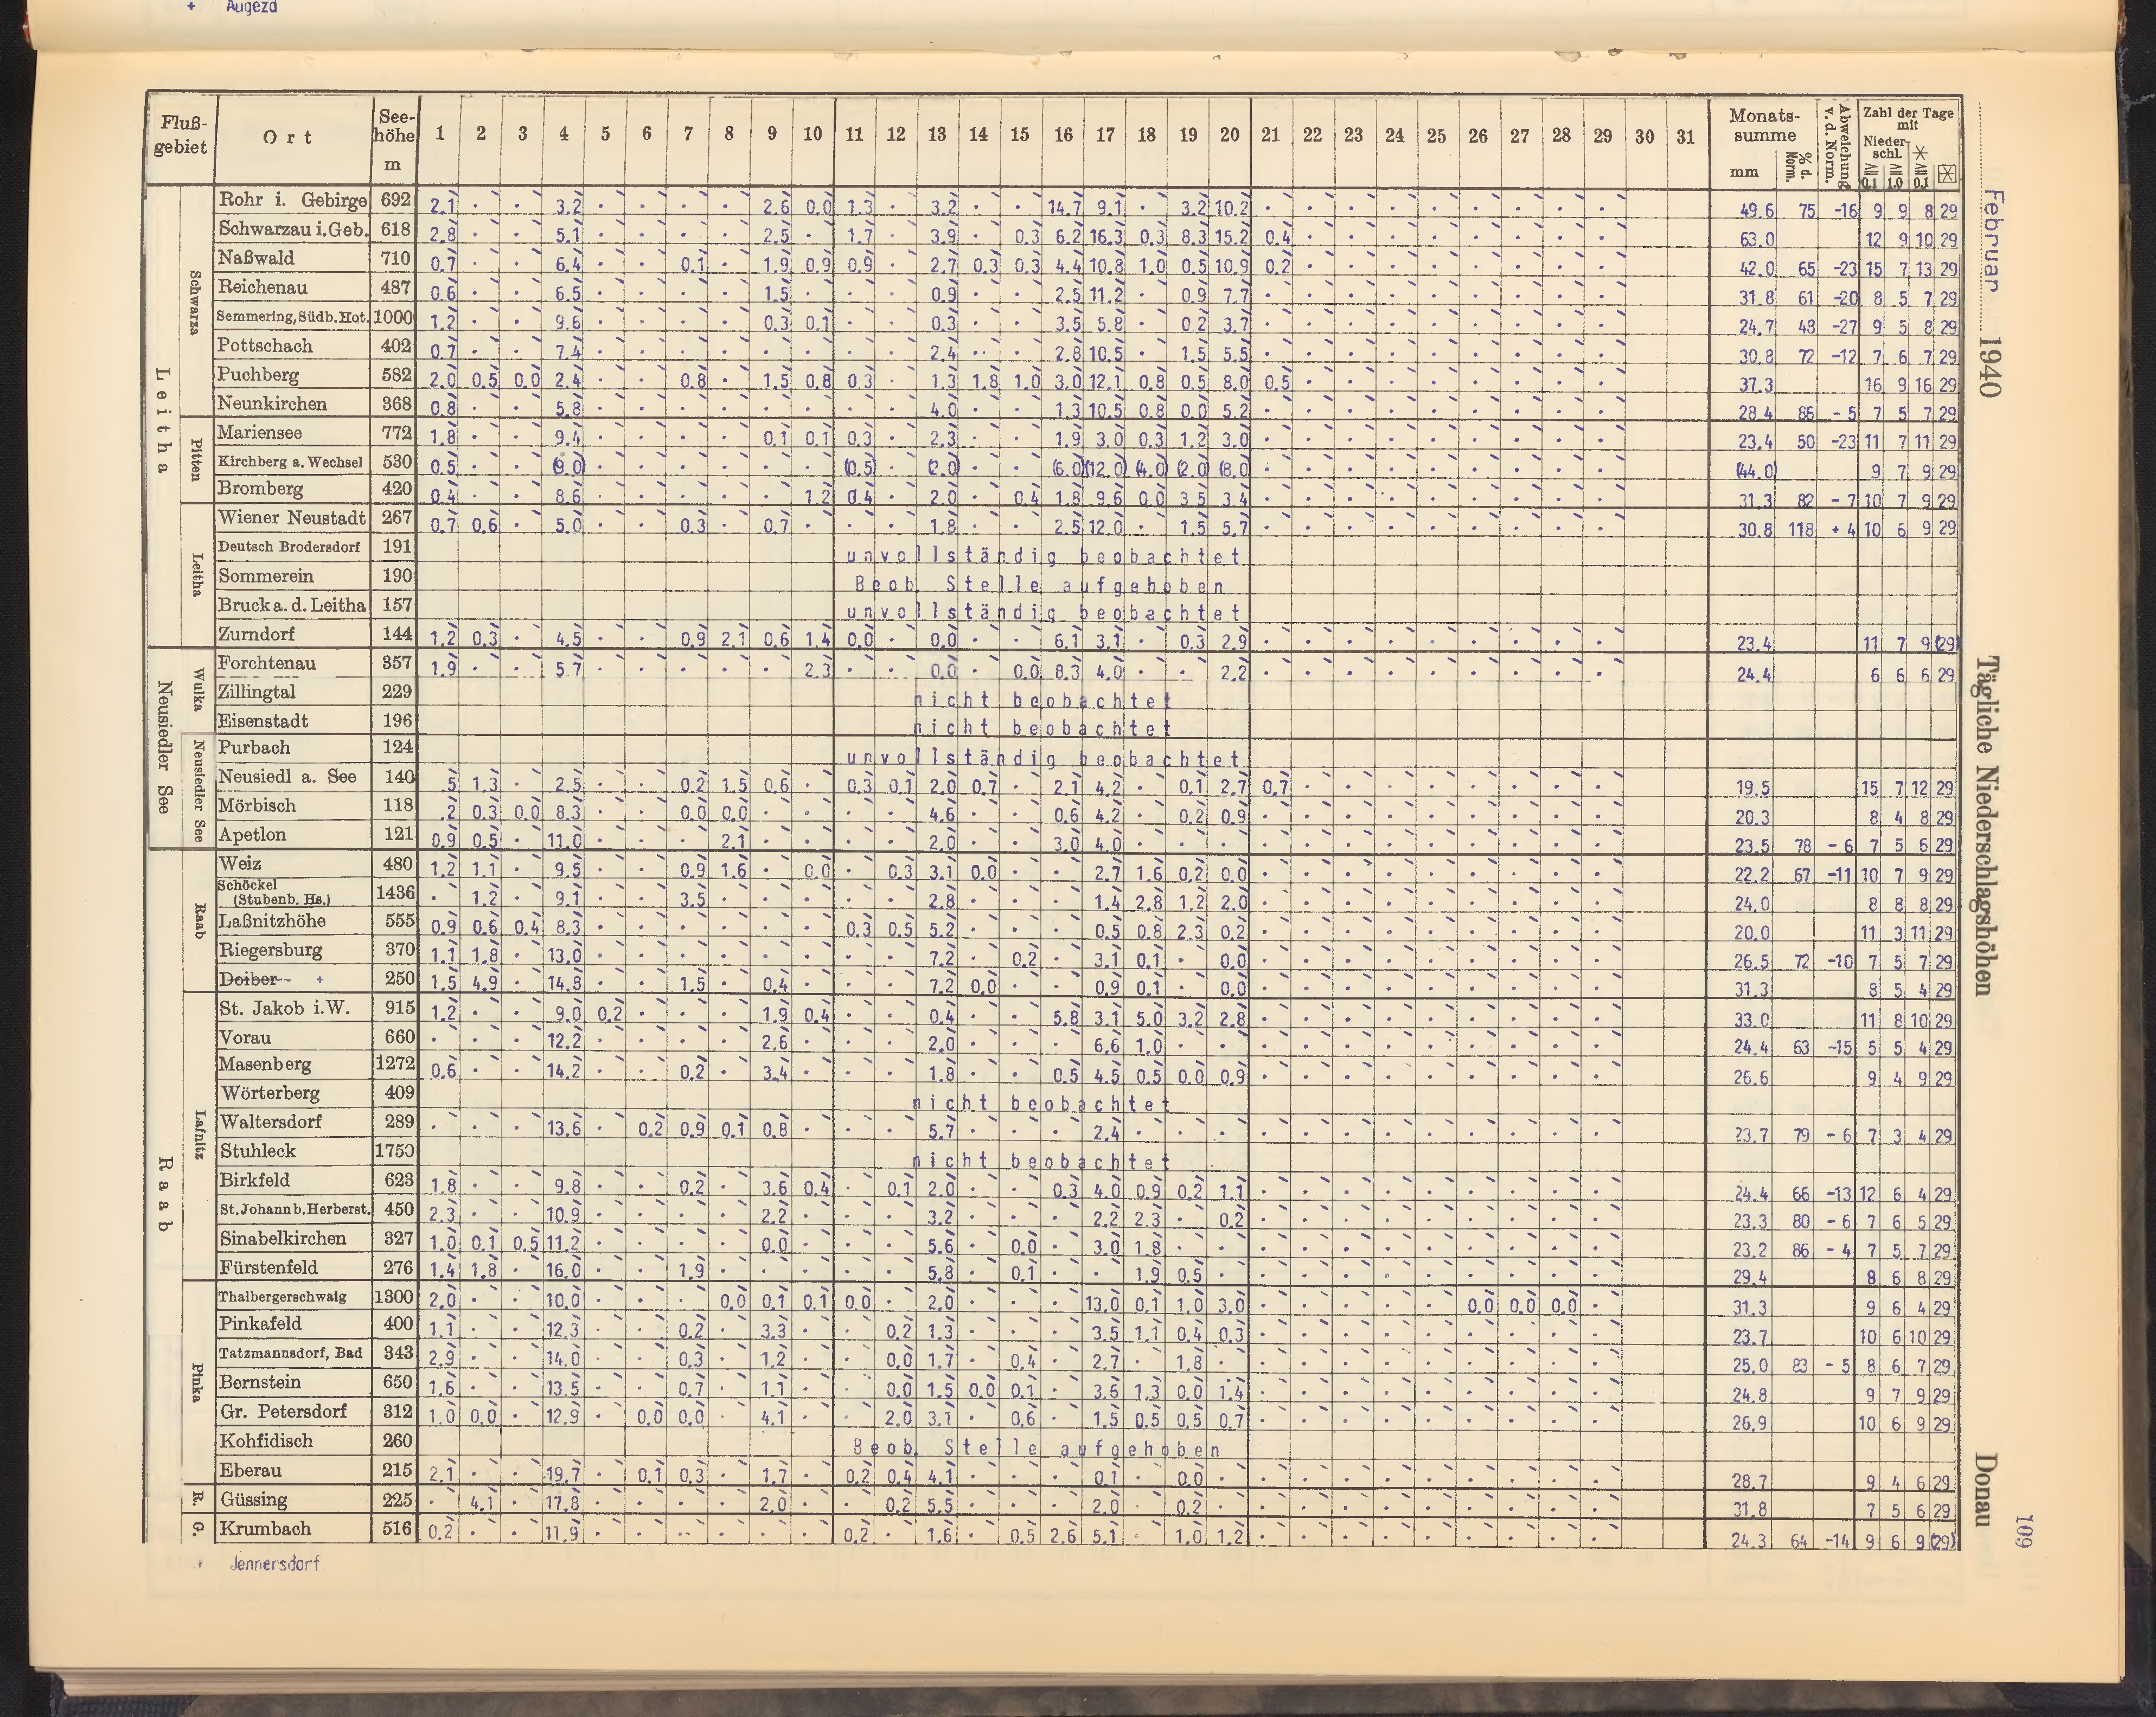 + Augezd
Fluß-gebiet Ort See-höhe m 1 2 3 4 5 6 7 8 9 10 11 12 13 14 15 16 17 18 19 20 21 22 23 24 25 26 27 28 29 30 31 Monats-summe mm % d. Norm. Abweichung v. d. Norm. Zahl der Tage mit Nieder-schl. ≧ 0.1 ≧ 1.0 ≧ 0.1
Leitha
Schwarza
Rohr i. Gebirge 692 2.1 · · 3.2 · · · · 2.6 0.0 1.3 · 3.2 · · 14.7 9.1 · 3.2 10.2 · · · · · · · · · 49.6 75 -16 9 9 8 29
Schwarzau i. Geb. 618 2.8 · · 5.1 · · · · 2.5 · 1.7 · 3.9 · 0.3 6.2 16.3 0.3 8.3 15.2 0.4 · · · · · · · · 63.0 12 9 10 29
Naßwald 710 0.7 · · 6.4 · · 0.1 · 1.9 0.9 0.9 · 2.7 0.3 0.3 4.4 10.8 1.0 0.5 10.9 0.2 · · · · · · · · 42.0 65 -23 15 7 13 29
Reichenau 487 0.6 · · 6.5 · · · · 1.5 · · · 0.9 · · 2.5 11.2 · 0.9 7.7 · · · · · · · · · 31.8 61 -20 8 5 7 29
Semmering, Südb. Hot. 1000 1.2 · · 9.6 · · · · 0.3 0.1 · · 0.3 · · 3.5 5.8 · 0.2 3.7 · · · · · · · · · 24.7 48 -27 9 5 8 29
Pottschach 402 0.7 · · 7.4 · · · · · · · · 2.4 · · 2.8 10.5 · 1.5 5.5 · · · · · · · · · 30.8 72 -12 7 6 7 29
Puchberg 582 2.0 0.5 0.0 2.4 · · 0.8 · 1.5 0.8 0.3 · 1.3 1.8 1.0 3.0 12.1 0.8 0.5 8.0 0.5 · · · · · · · · 37.3 16 9 16 29
Neunkirchen 368 0.8 · · 5.8 · · · · · · · · 4.0 · · 1.3 10.5 0.8 0.0 5.2 · · · · · · · · · 28.4 86 - 5 7 5 7 29
Pitten
Mariensee 772 1.8 · · 9.4 · · · · 0.1 0.1 0.3 · 2.3 · · 1.9 3.0 0.3 1.2 3.0 · · · · · · · · · 23.4 50 -23 11 7 11 29
Kirchberg a. Wechsel 530 0.5 · · (9.0) · · · · · · (0.5) · (2.0) · · (6.0) (12.0) (4.0) (2.0) (8.0) · · · · · · · · · (44.0) 9 7 9 29
Bromberg 420 0.4 · · 8.6 · · · · · 1.2 0.4 · 2.0 · 0.4 1.8 9.6 0.0 3.5 3.4 · · · · · · · · · 31.3 82 - 7 10 7 9 29
Leitha
Wiener Neustadt 267 0.7 0.6 · 5.0 · · 0.3 · 0.7 · · · 1.8 · · 2.5 12.0 · 1.5 5.7 · · · · · · · · · 30.8 118 + 4 10 6 9 29
Deutsch Brodersdorf 191 unvollständig beobachtet
Sommerein 190 Beob. Stelle aufgehoben
Bruck a. d. Leitha 157 unvollständig beobachtet
Zurndorf 144 1.2 0.3 · 4.5 · · 0.9 2.1 0.6 1.4 0.0 · 0.0 · · 6.1 3.1 · 0.3 2.9 · · · · · · · · · 23.4 11 7 9 (29)
Neusiedler See
Wulka
Forchtenau 357 1.9 · · 5.7 · · · · · 2.3 · · 0.0 · 0.0 8.3 4.0 · · 2.2 · · · · · · · · · 24.4 6 6 6 29
Zillingtal 229 nicht beobachtet
Eisenstadt 196 nicht beobachtet
Neusiedler See
Purbach 124 unvollständig beobachtet
Neusiedl a. See 140 .5 1.3 · 2.5 · · 0.2 1.5 0.6 · 0.3 0.1 2.0 0.7 · 2.1 4.2 · 0.1 2.7 0.7 · · · · · · · · 19.5 15 7 12 29
Mörbisch 118 .2 0.3 0.0 8.3 · · 0.0 0.0 · · · · 4.6 · · 0.6 4.2 · 0.2 0.9 · · · · · · · · · 20.3 8 4 8 29
Apetlon 121 0.9 0.5 · 11.0 · · · 2.1 · · · · 2.0 · · 3.0 4.0 · · · · · · · · · · · · 23.5 78 - 6 7 5 6 29
Raab
Raab
Weiz 480 1.2 1.1 · 9.5 · · 0.9 1.6 · 0.0 · 0.3 3.1 0.0 · · 2.7 1.6 0.2 0.0 · · · · · · · · · 22.2 67 -11 10 7 9 29
Schöckel (Stubenb. Hs.) 1436 · 1.2 · 9.1 · · 3.5 · · · · · 2.8 · · · 1.4 2.8 1.2 2.0 · · · · · · · · · 24.0 8 8 8 29
Laßnitzhöhe 555 0.9 0.6 0.4 8.3 · · · · · · 0.3 0.5 5.2 · · · 0.5 0.8 2.3 0.2 · · · · · · · · · 20.0 11 3 11 29
Riegersburg 370 1.1 1.8 · 13.0 · · · · · · · · 7.2 · 0.2 · 3.1 0.1 · 0.0 · · · · · · · · · 26.5 72 -10 7 5 7 29
Doiber + 250 1.5 4.9 · 14.8 · · 1.5 · 0.4 · · · 7.2 0.0 · · 0.9 0.1 · 0.0 · · · · · · · · · 31.3 8 5 4 29
Lafnitz
St. Jakob i. W. 915 1.2 · · 9.0 0.2 · · · 1.9 0.4 · · 0.4 · · 5.8 3.1 5.0 3.2 2.8 · · · · · · · · · 33.0 11 8 10 29
Vorau 660 · · · 12.2 · · · · 2.6 · · · 2.0 · · · 6.6 1.0 · · · · · · · · · · · 24.4 63 -15 5 5 4 29
Masenberg 1272 0.6 · · 14.2 · · 0.2 · 3.4 · · · 1.8 · · 0.5 4.5 0.5 0.0 0.9 · · · · · · · · · 26.6 9 4 9 29
Wörterberg 409 nicht beobachtet
Waltersdorf 289 · · · 13.6 · 0.2 0.9 0.1 0.8 · · · 5.7 · · · 2.4 · · · · · · · · · · · · 23.7 79 - 6 7 3 4 29
Stuhleck 1750 nicht beobachtet
Birkfeld 623 1.8 · · 9.8 · · 0.2 · 3.6 0.4 · 0.1 2.0 · · 0.3 4.0 0.9 0.2 1.1 · · · · · · · · · 24.4 66 -13 12 6 4 29
St. Johann b. Herberst. 450 2.3 · · 10.9 · · · · 2.2 · · · 3.2 · · · 2.2 2.3 · 0.2 · · · · · · · · · 23.3 80 - 6 7 6 5 29
Sinabelkirchen 327 1.0 0.1 0.5 11.2 · · · · 0.0 · · · 5.6 · 0.0 · 3.0 1.8 · · · · · · · · · · · 23.2 86 - 4 7 5 7 29
Fürstenfeld 276 1.4 1.8 · 16.0 · · 1.9 · · · · · 5.8 · 0.1 · · 1.9 0.5 · · · · · · · · · · 29.4 8 6 8 29
Pinka
Thalbergerschwaig 1300 2.0 · · 10.0 · · · 0.0 0.1 0.1 0.0 · 2.0 · · · 13.0 0.1 1.0 3.0 · · · · · 0.0 0.0 0.0 · 31.3 9 6 4 29
Pinkafeld 400 1.1 · · 12.3 · · 0.2 · 3.3 · · 0.2 1.3 · · · 3.5 1.1 0.4 0.3 · · · · · · · · · 23.7 10 6 10 29
Tatzmannsdorf, Bad 343 2.9 · · 14.0 · · 0.3 · 1.2 · · 0.0 1.7 · 0.4 · 2.7 · 1.8 · · · · · · · · · · 25.0 83 - 5 8 6 7 29
Bernstein 650 1.6 · · 13.5 · · 0.7 · 1.1 · · 0.0 1.5 0.0 0.1 · 3.6 1.3 0.0 1.4 · · · · · · · · · 24.8 9 7 9 29
Gr. Petersdorf 312 1.0 0.0 · 12.9 · 0.0 0.0 · 4.1 · · 2.0 3.1 · 0.6 · 1.5 0.5 0.5 0.7 · · · · · · · · · 26.9 10 6 9 29
Kohfidisch 260 Beob. Stelle aufgehoben
Eberau 215 2.1 · · 19.7 · 0.1 0.3 · 1.7 · 0.2 0.4 4.1 · · · 0.1 · 0.0 · · · · · · · · · · 28.7 9 4 6 29
R.
Güssing 225 · 4.1 · 17.8 · · · · 2.0 · · 0.2 5.5 · · · 2.0 · 0.2 · · · · · · · · · · 31.8 7 5 6 29
G.
Krumbach 516 0.2 · · 11.9 · · · · · · 0.2 · 1.6 · 0.5 2.6 5.1 · 1.0 1.2 · · · · · · · · · 24.3 64 -14 9 6 9 (29)
+ Jennersdorf
Februar 1940
Tägliche Niederschlagshöhen
Donau
109